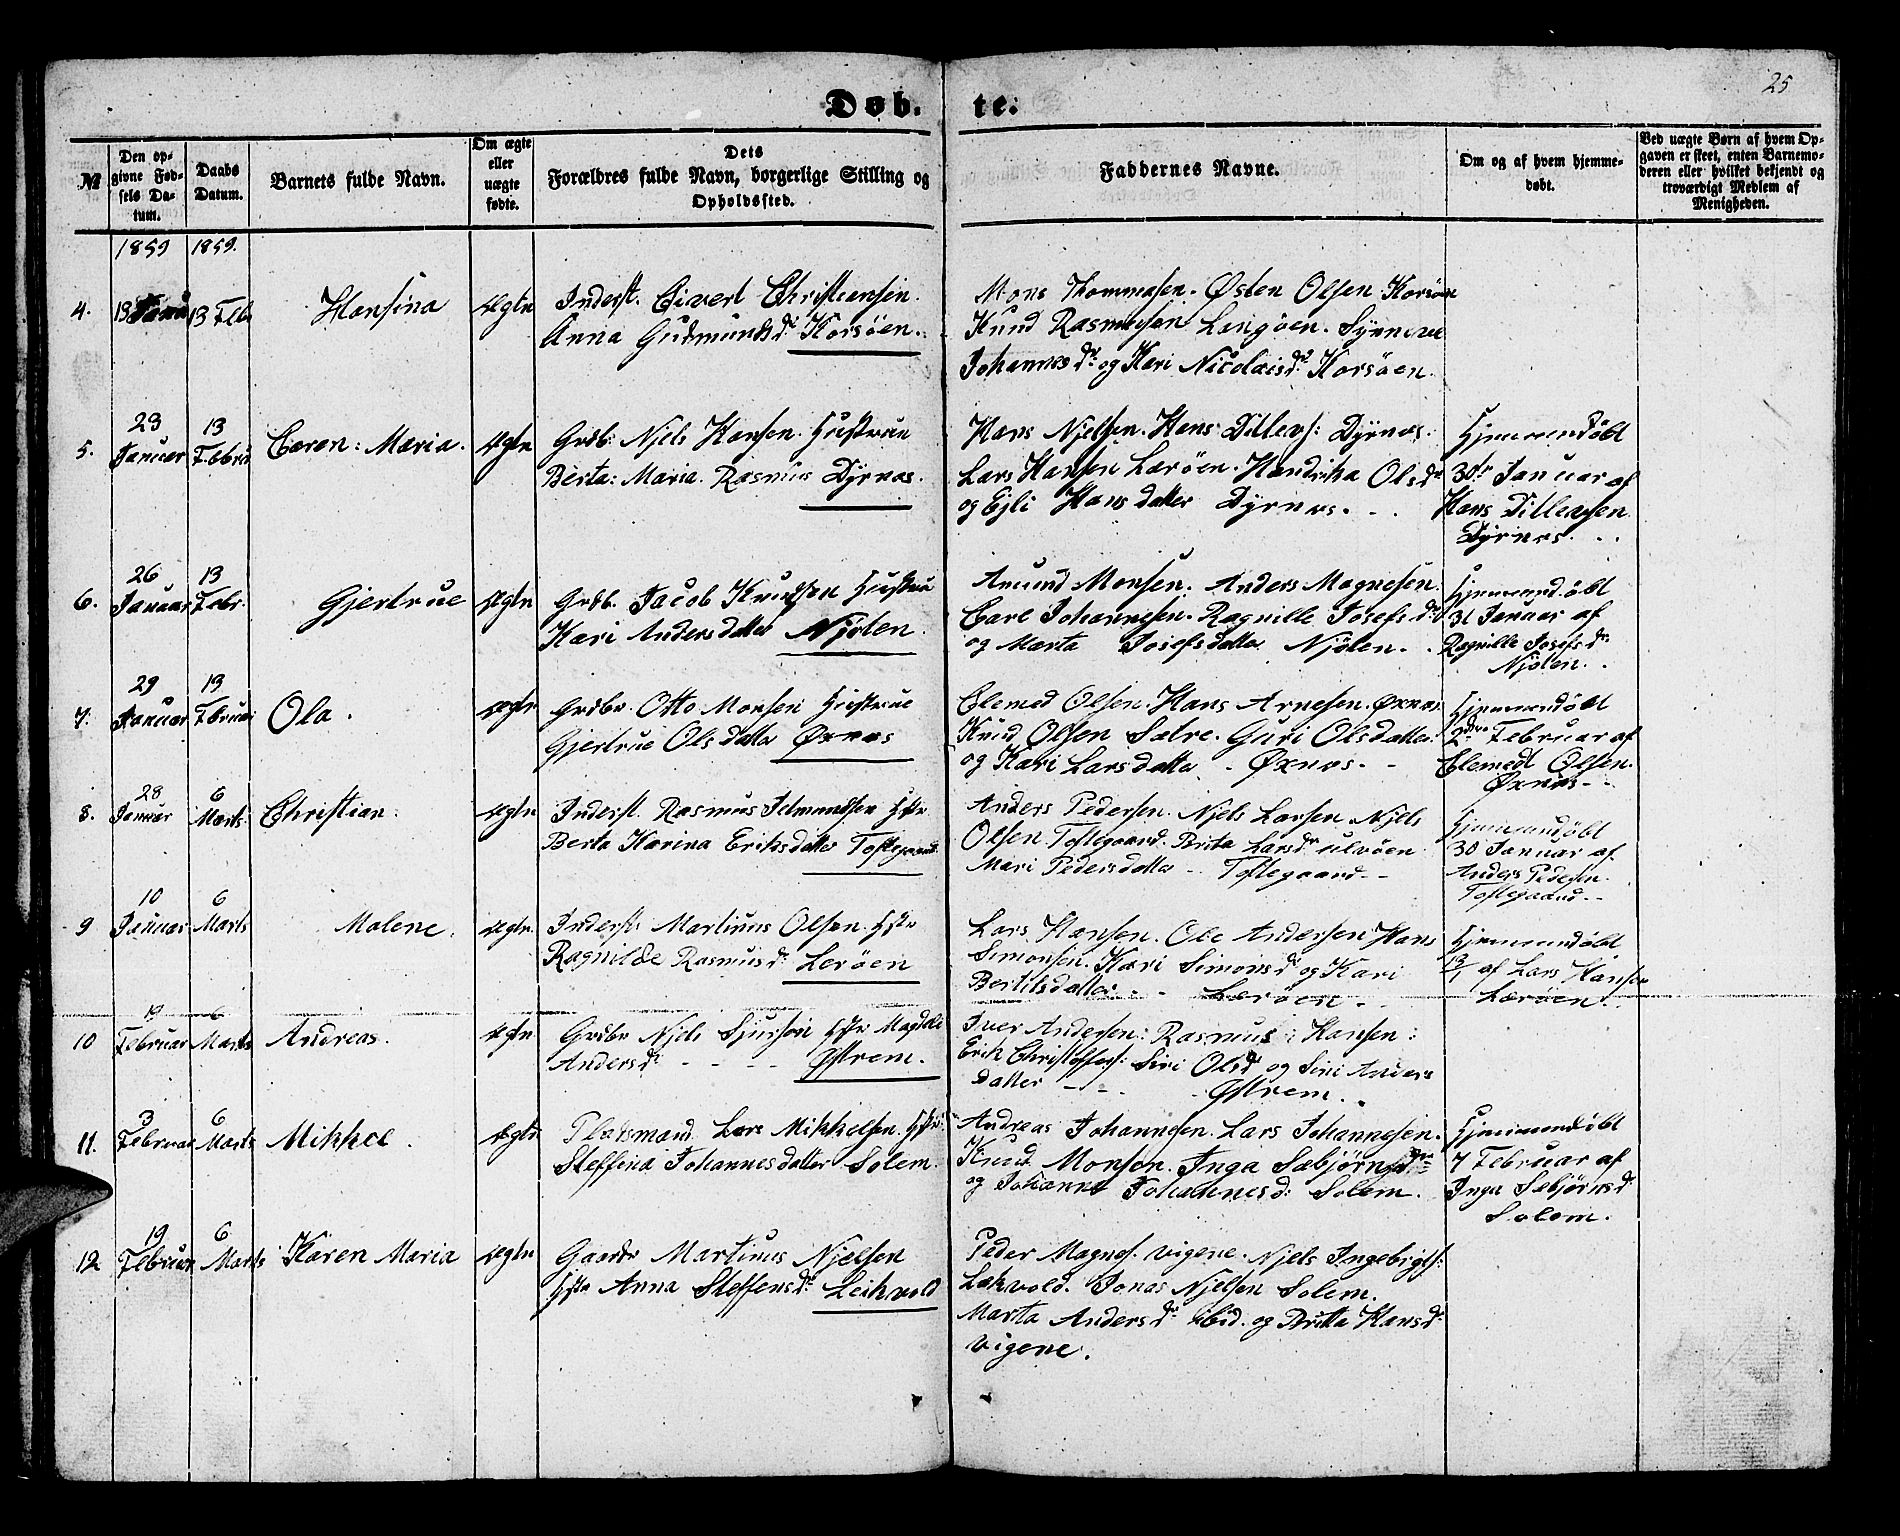 25
Døb. te:
№
Den op-
givne Fød-
sels Da-
tum.
Daabs
Datum.
Barnets fulde Navn.
Om ægte
eller
uægte
fødte.
Dets
Forældres fulde Navn, borgerlige Stilling og
Opholdssted.
Faddernes Navne.
Om og af hvem hjemme-
døbt.
Ved uægte Børn af hvem Op-
gaven er skeet, enten Barnemo-
deren eller hvilket bekjendt og
troværdigt Medlem af
Menigheden.
1859 1859.
4. 13 Feb Hansina Ægte
Inderst. Eivert Christiansen.
Anna Gudmundsdr Korsøen.
Mons Thommasen. Østen Olsen Korsøen
Knud Rasmusen Langøen. Synneve
Johannesdr og Kari Nicolaisdr Korsøen.
5. 23 Januar 13 Februar Caren: Maria. Ægte
Grdb: Njels Hansen. Hustrue
Berta: Maria. Rasmus Dyrnæs.
Hans Njelsen. Hans Dillevs: Dyrnæs.
Lars Hansen Lærøen. Hendrika Olsdr
og Ejli Hansdatter Dyrnæs.
Hjemmendøbt
30te Januar af
Hans Dillevsen
Dyrnæs.
6. 26 Januar 13 Febr. Gjertrue Ægte
Grdb. Jacob Knudsen Hustrue
Kari Andersdatter Njølen.
Amund Monsen. Anders Magnesen.
Carl Johannesen. Ragnille Josefsdr
og Marta Josefsdatter Njølen.
Hjemmendøbt
31 Januar af
Ragnille Josefsdr
Njølen.
7. 29 Januar 13 Februar Ola. Ægte
Grdbr. Otto Monsen Hustrue
Gjertrue Olsdatter Øxnæs
Clemed Olsen. Hans Arnesen. Øxnæs.
Knud Olsen Sætre. Guri Olsdatter.
og Kari Larsdatter - Øxnæs. -
Hjemmendøbt
2den Februar af
Clemedt Olsen.
Øxnæs - -
8. 28 Januar 6 Marts Christian. Ægte
Inderst. Rasmus Jelmundsen Hstr
Berta Karina Eriksdatter Toftegaard
Anders Pedersen. Njels Larsen Njels
Olsen Toftegaard. Brita Larsdr ulvøen
Mari Pedersdatter - Toftegaard - -
Hjemmendøbt
30 Januar af
Anders Pedersen.
Toftegaard - -
9 10 Januar 6 Marts Malene. Ægte
Inderst: Martinus Olsen Hstr
Ragnilde Rasmusdr Lerøen
Lars Hansen. Ole Andersen Hans
Simonsen. Kari Simonsdr og Kari
Bertilsdatter - - Lærøen -
Hjemmendøbt
13/1 af Lars Hansen
Lærøen.
10 19 Februar 6 Marts Andreas. Ægte
Grdbr Njels Sjurson Hstr Magdali
Andersdr - - - Ystrem.
Iver Andersen: Rasmus: Hansen:
Erik Christoffers: Siri Olsdr og Sini Anders
datter - - - Ystrem.
11. 3 Februar 6 Marts Mikkel. Ægte
Pladsmand Lars Mikkelsen. Hstr:
Steffina Johannesdatter Solem.
Andreas Johannesen. Lars Johannesen.
Knud Monsen. Inga Sæbjørnsdr
og Johanne Johannesdr Solem.
Hjemmendøbt
7 Februar af
Inga Sebjørnsdr
Solem.
12 19 Februar 6 Marts Karen Maria Ægte
Gaardr Martinus Njelsen
Hstr Anna Steffensdr Leikvold
Peder Magnes. vigene. Njels Ingebrigts:
Lekvold. Jonas Njelsen Solem.
Marta Andersdr ibid. og Britta Hansdr
vigene.